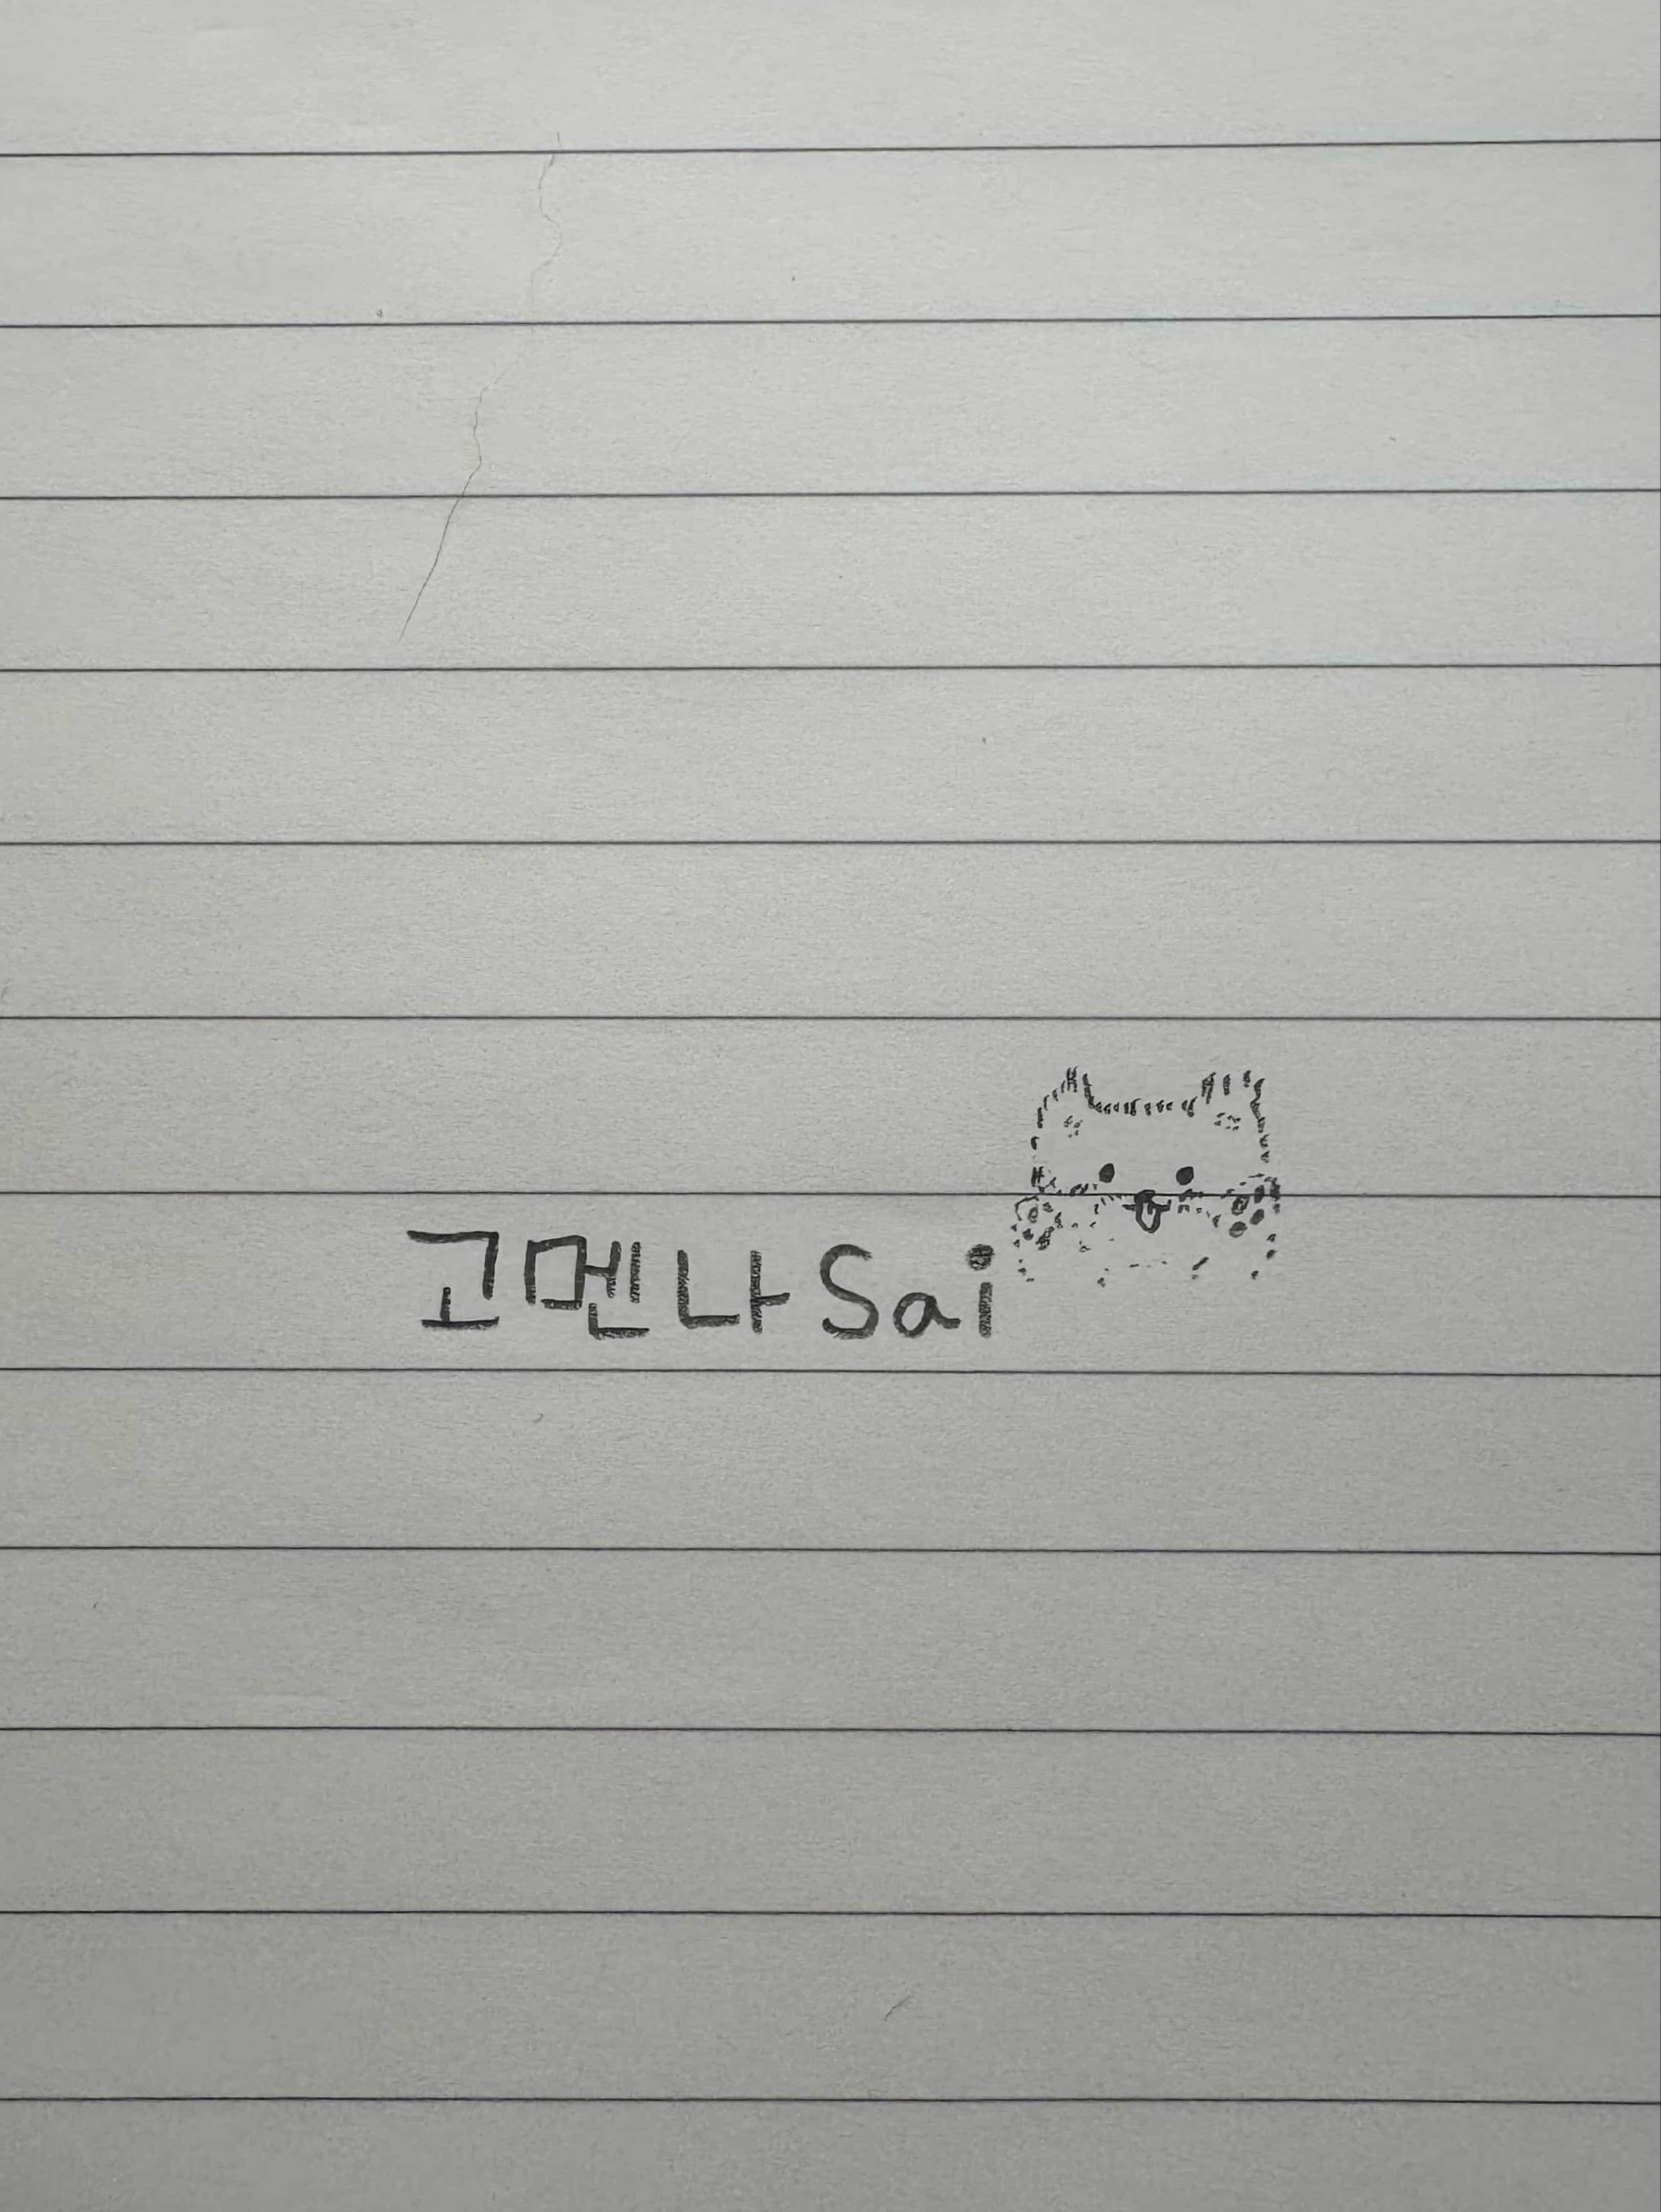 고멘나Sai